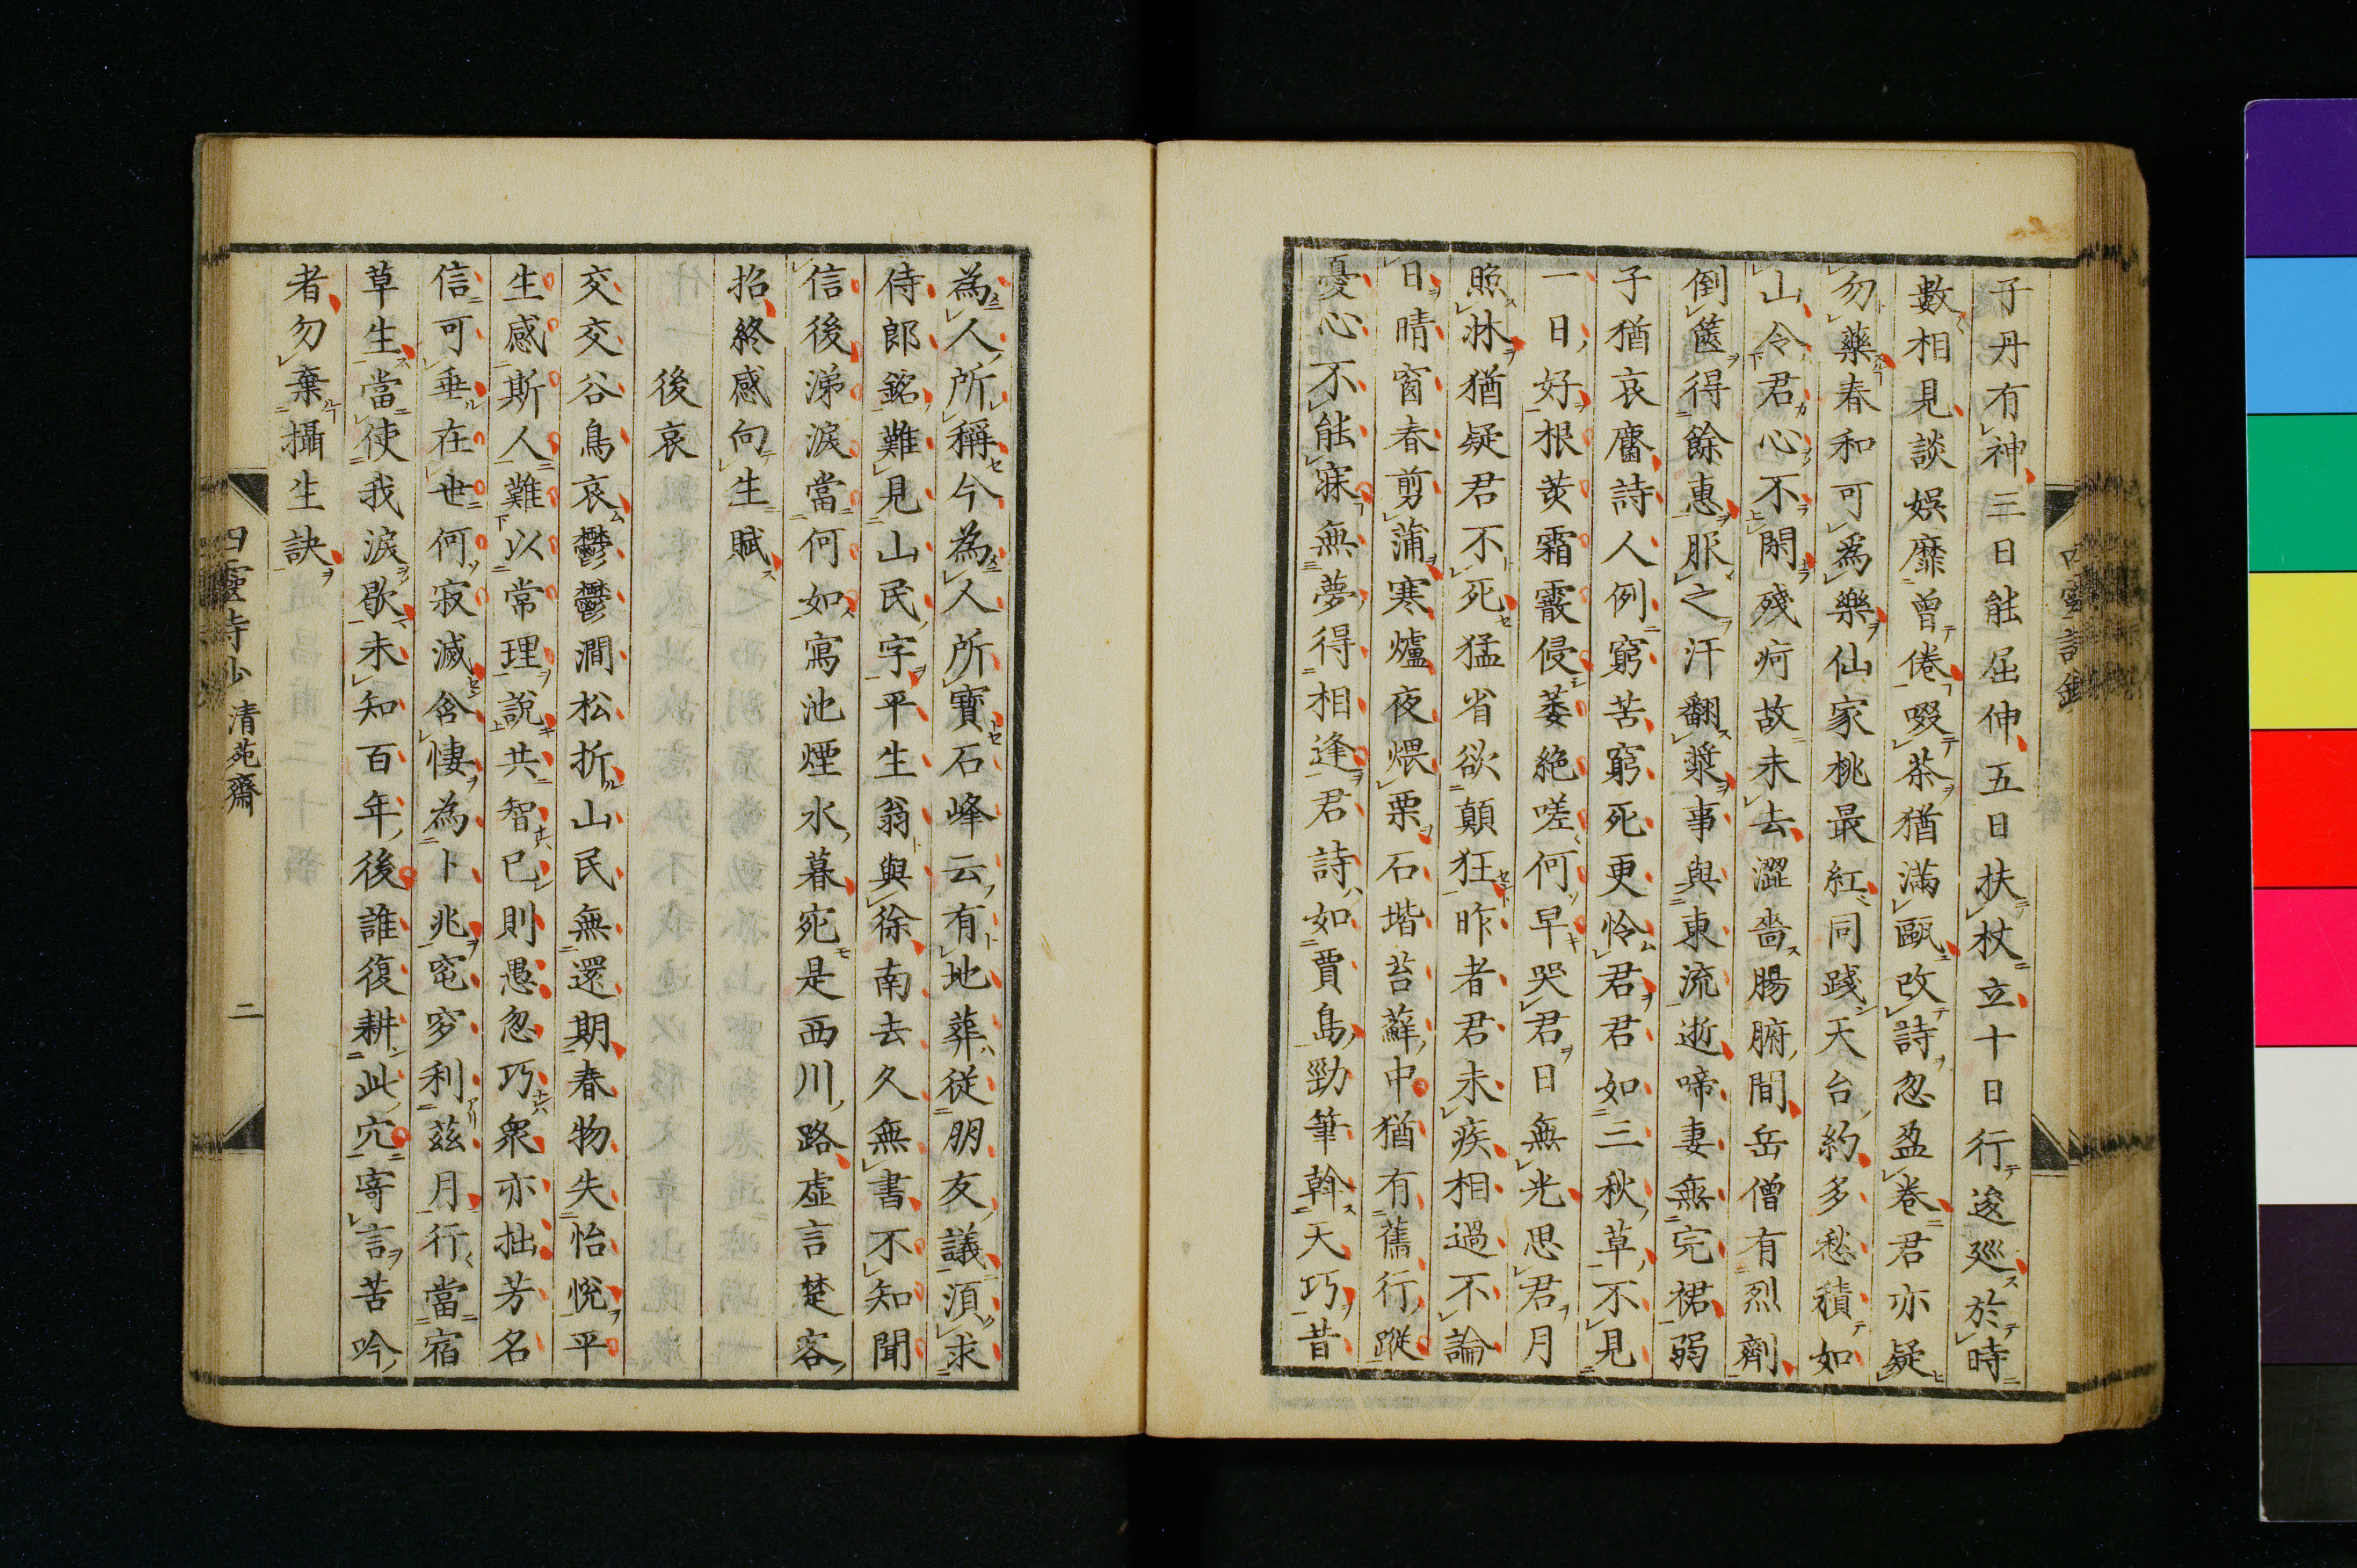 子丹有神三日能屈伸五日扶杖立十日行逡巡於時
數相見談娯靡曾倦啜茶猶滿甌改詩忽盈卷君亦疑
勿藥春和可為樂仙家桃最紅同踐天台約多愁積如
山令君心不閑殘疴故未去澀嗇腸腑間岳僧有烈劑
倒篋得餘惠服之汗翻漿事與東流逝啼妻無完裙弱
子猶哀麕詩人例窮苦窮死更怜君君如三秋草不見
一日好根荄霜霰侵萎絶嗟何早哭君日無光思君月
照牀猶疑君不死猛省欲顛狂昨者君未疾相過不論
日晴窗春剪蒲寒爐夜煨栗石堦苔蘚中猶有舊行蹤
憂心不能寐無夢得相逢君詩如賈島勁筆斡天巧昔
為人所稱今為人所寶石峰云有地葬從朋友議湏求
侍郎銘難見山民字平生翁與徐南去久無書不知聞
信後涕淚當何如寫池煙水暮宛是西川路虛言楚客
招終感向生賦
後哀
交交谷鳥哀鬱鬱澗松折山民無還期春物失怡悅平
生感斯人難以常理說共智已則愚忽巧衆亦拙芳名
信可垂在世何寂滅含悽為卜兆窀穸利茲月行當宿
草生當使我淚歇未知百年後誰復耕此穴寄言苦吟
者勿棄攝生訣
四靈詩鈔
清苑齋
二